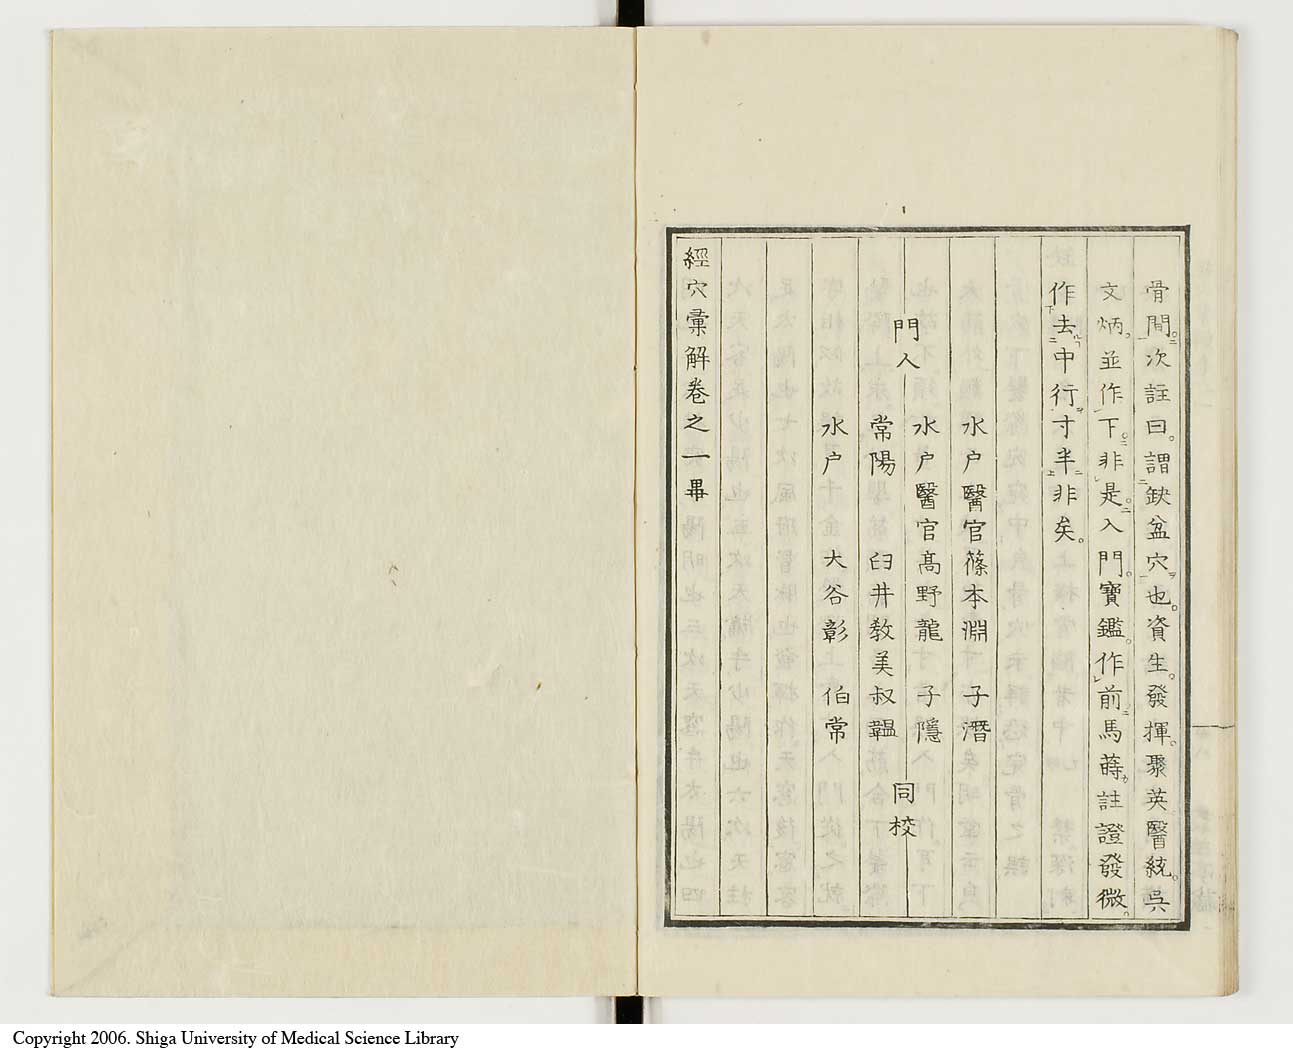 骨間次註曰謂缺盆穴也資生發揮聚英醫統吳
文炳並作下非是入門寶鑑作前馬蒔註證發微
作去中行寸半非矣
水戶醫官篠本淵 子潛
門人 水戶醫官髙野龍 子隱 同校
常陽 臼井敎美叔韞
水戶 大谷彰 伯常
經穴彙解卷之一畢
Copyright 2006. Shiga University of Medical Science Library